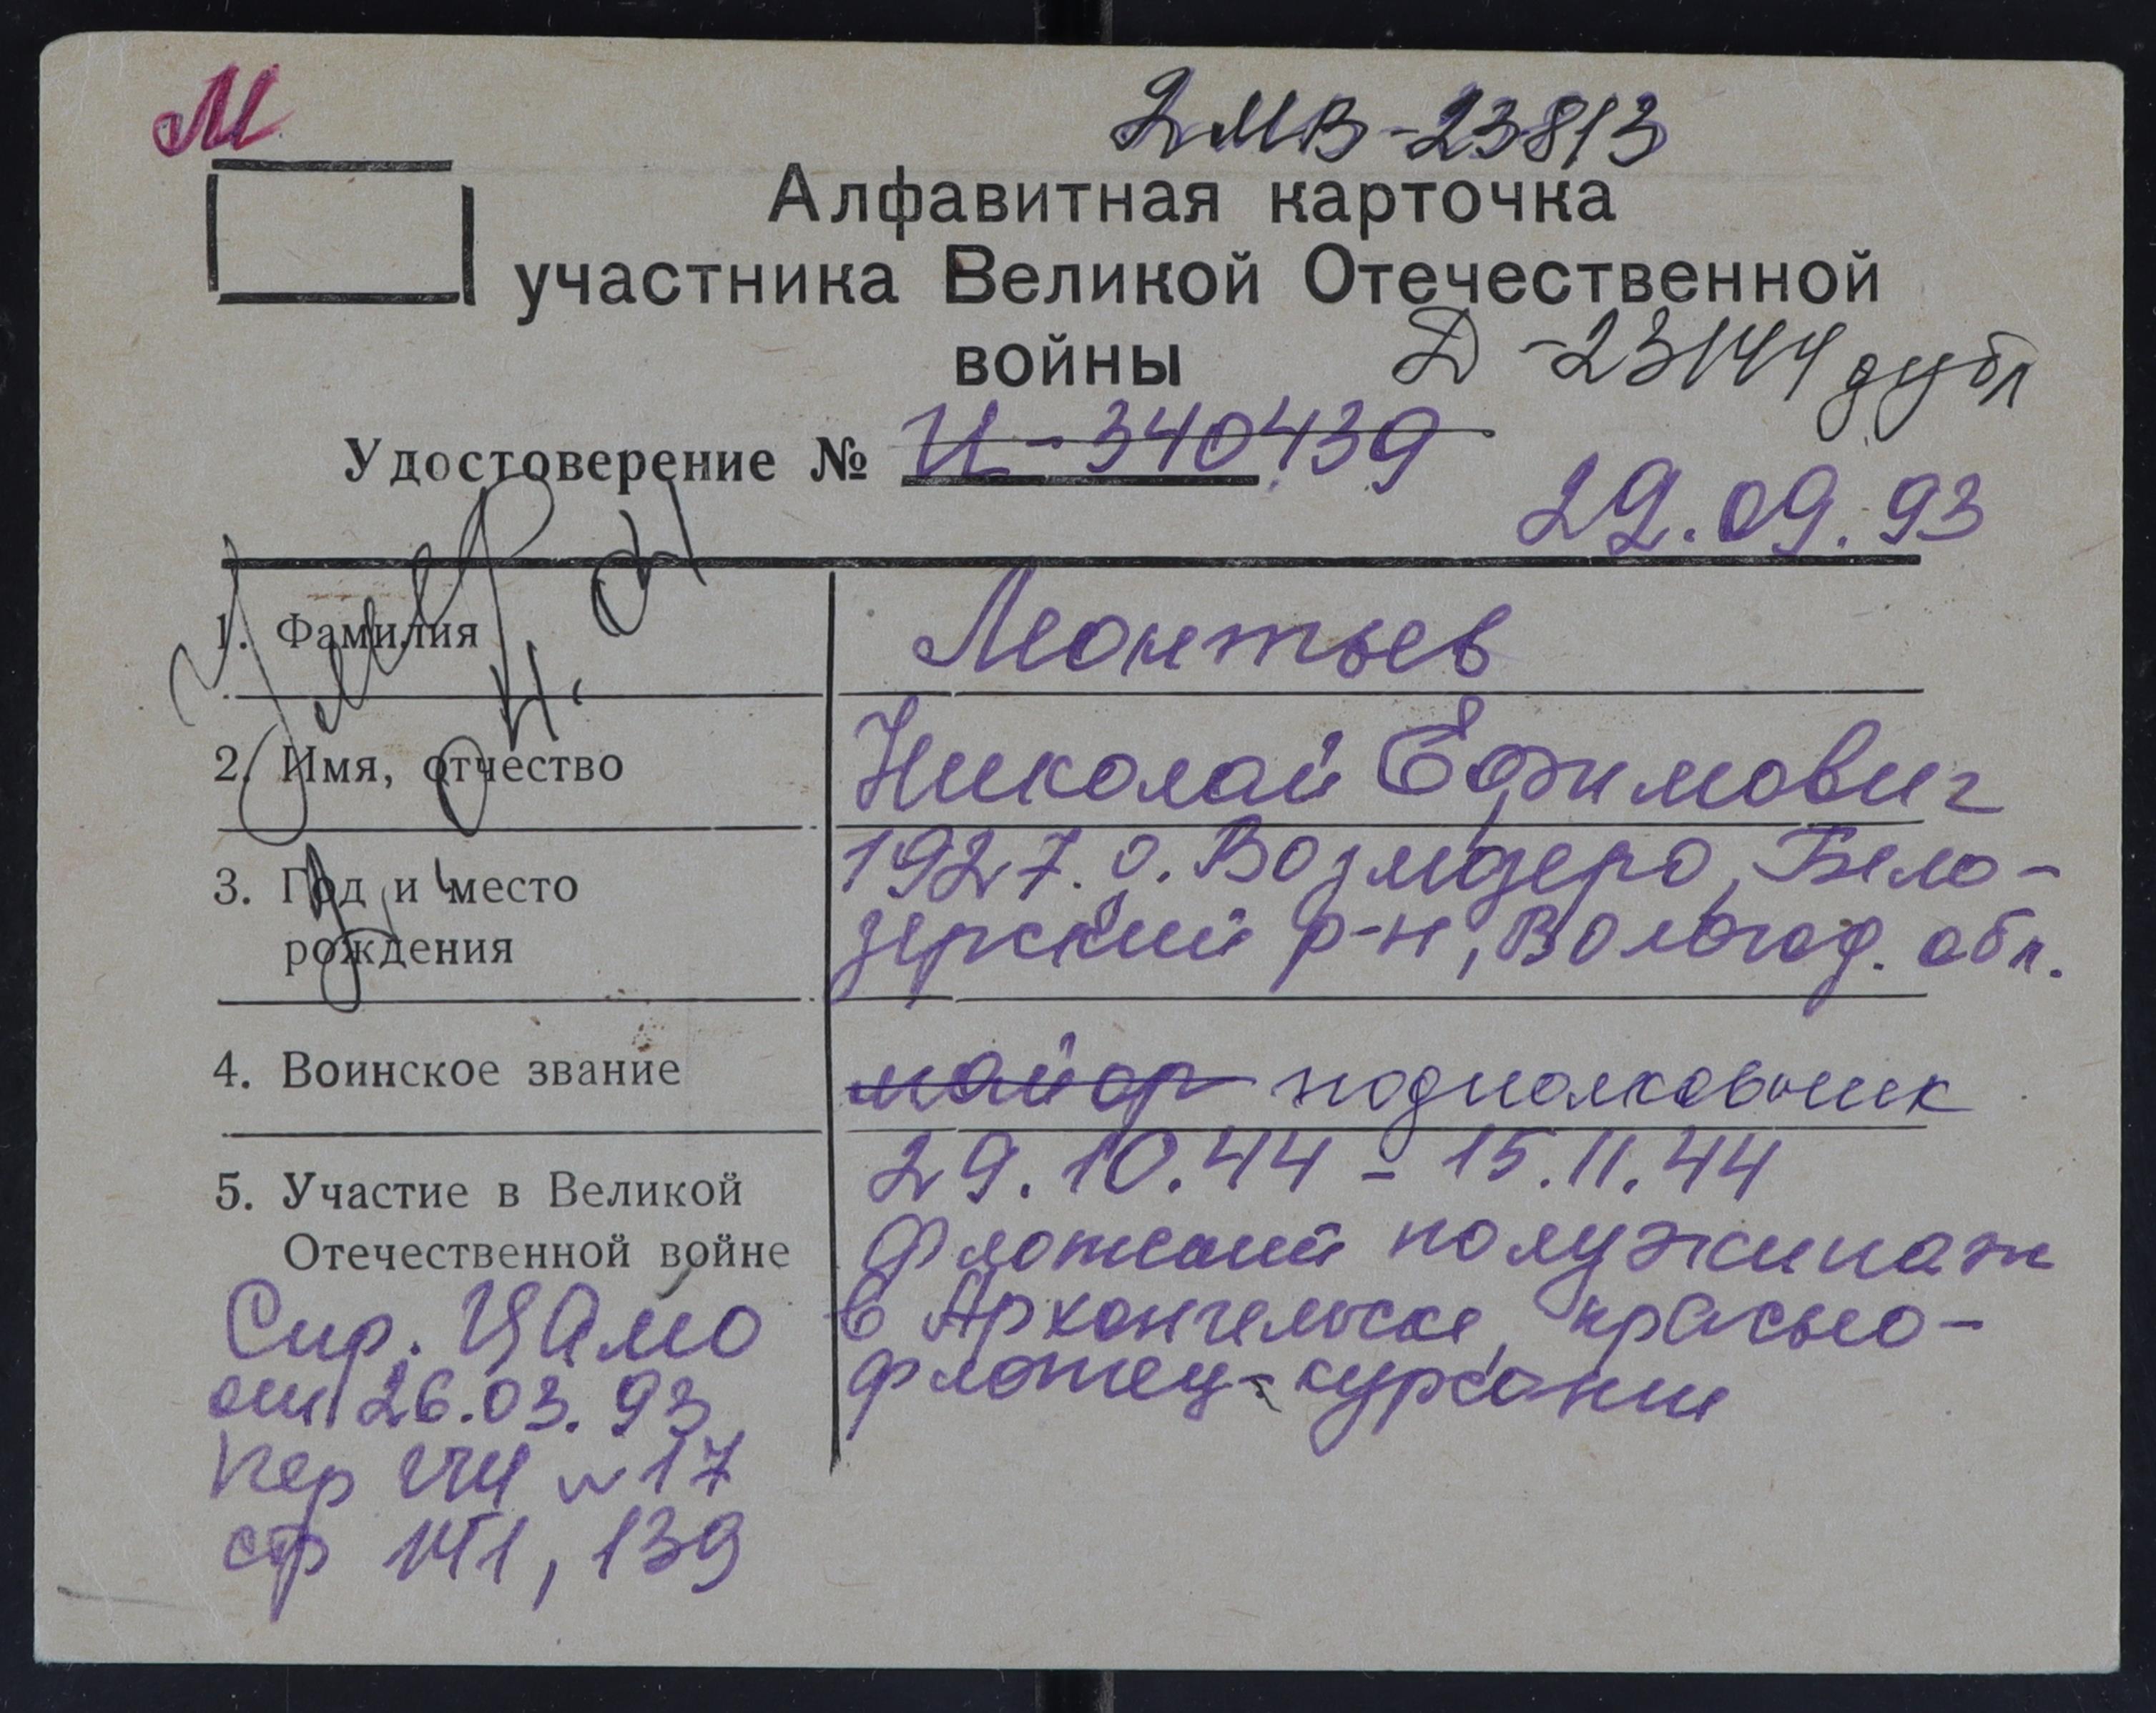 М
2МВ-23813
Алфавитная карточка
участника Великой Отечественной
войны
Д-23144 дубл
Удостоверение № И-340439
29.09.93
1. Фамилия Леонтьев
2. Имя, отчество Николай Ефимович
3. Год и место рождения 1927. о. Возмозеро, Бело-
зерский р-н, Вологод. обл.
4. Воинское звание майор подполковник
5. Участие в Великой Отечественной войне 29.10.44 - 15.11.44
Флотский полуэкипаж
в Архангельске, красно-
флотец-курсант
Спр. ЦАМО
от 26.03.93
Пер № 17
стр 141, 139